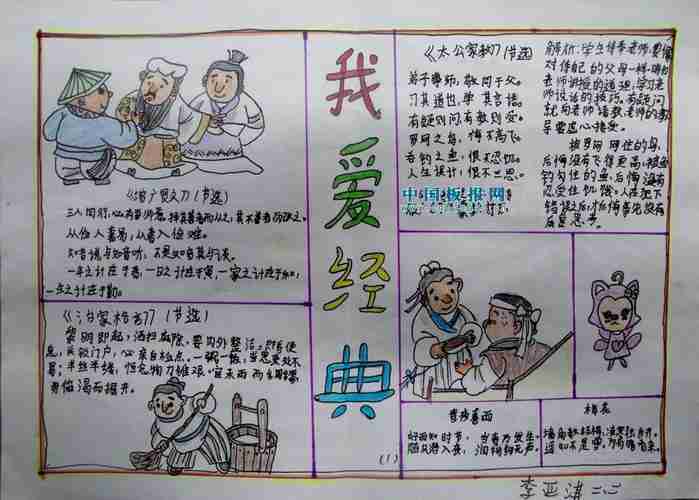 我爱经典
《增广贤文》(节选)
三人同行,必有我师焉,择其善者而从之,其不善者而改之。
从俭入奢易,从奢入俭难。
知音说与知音听,不是知音莫与谈。
一年之计在于春,一日之计在于寅,一家之计在于和,
一生之计在于勤。
《治家格言》(节选)
黎明即起,洒扫庭除,要内外整洁。
关锁门户,必亲自检点。一粥一饭,当思来处不
易;半丝半缕,恒念物力维艰。宜未雨而绸缪,
毋临渴而掘井。
《太公家教》节选
弟子事师,敬同于父。
习其道也,学其言语。
有疑则问,有教则受。
罗网之鸟,悔不高飞。
吞钩之鱼,恨不忍饥。
人生误计,恨不三思。
中国板报网
解析:学生侍奉老师,要像
对待自己的父母一样,
老师讲授的道理,学习老
师说话的技巧,有疑问
就向老师请教,老师的教
导要虚心接受。
被罗网网住的鸟,
后悔没有飞得更高,被鱼
钩钩住的鱼,后悔没有
忍受住饥饿,人在犯下
错误之后,才后悔事先没有
三思
春夜喜雨
好雨知时节,当春乃发生。
随风潜入夜,润物细无声。
梅花
墙角数枝梅,凌寒独自开。
遥知不是雪,为有暗香来。
(1)